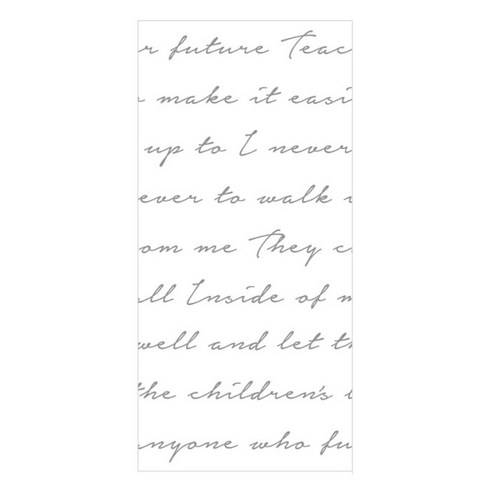 r future Teac
make it easi
up to I never
ever to walk
om me They c
ll Inside of m
well and let th
the children's
anyone who fu